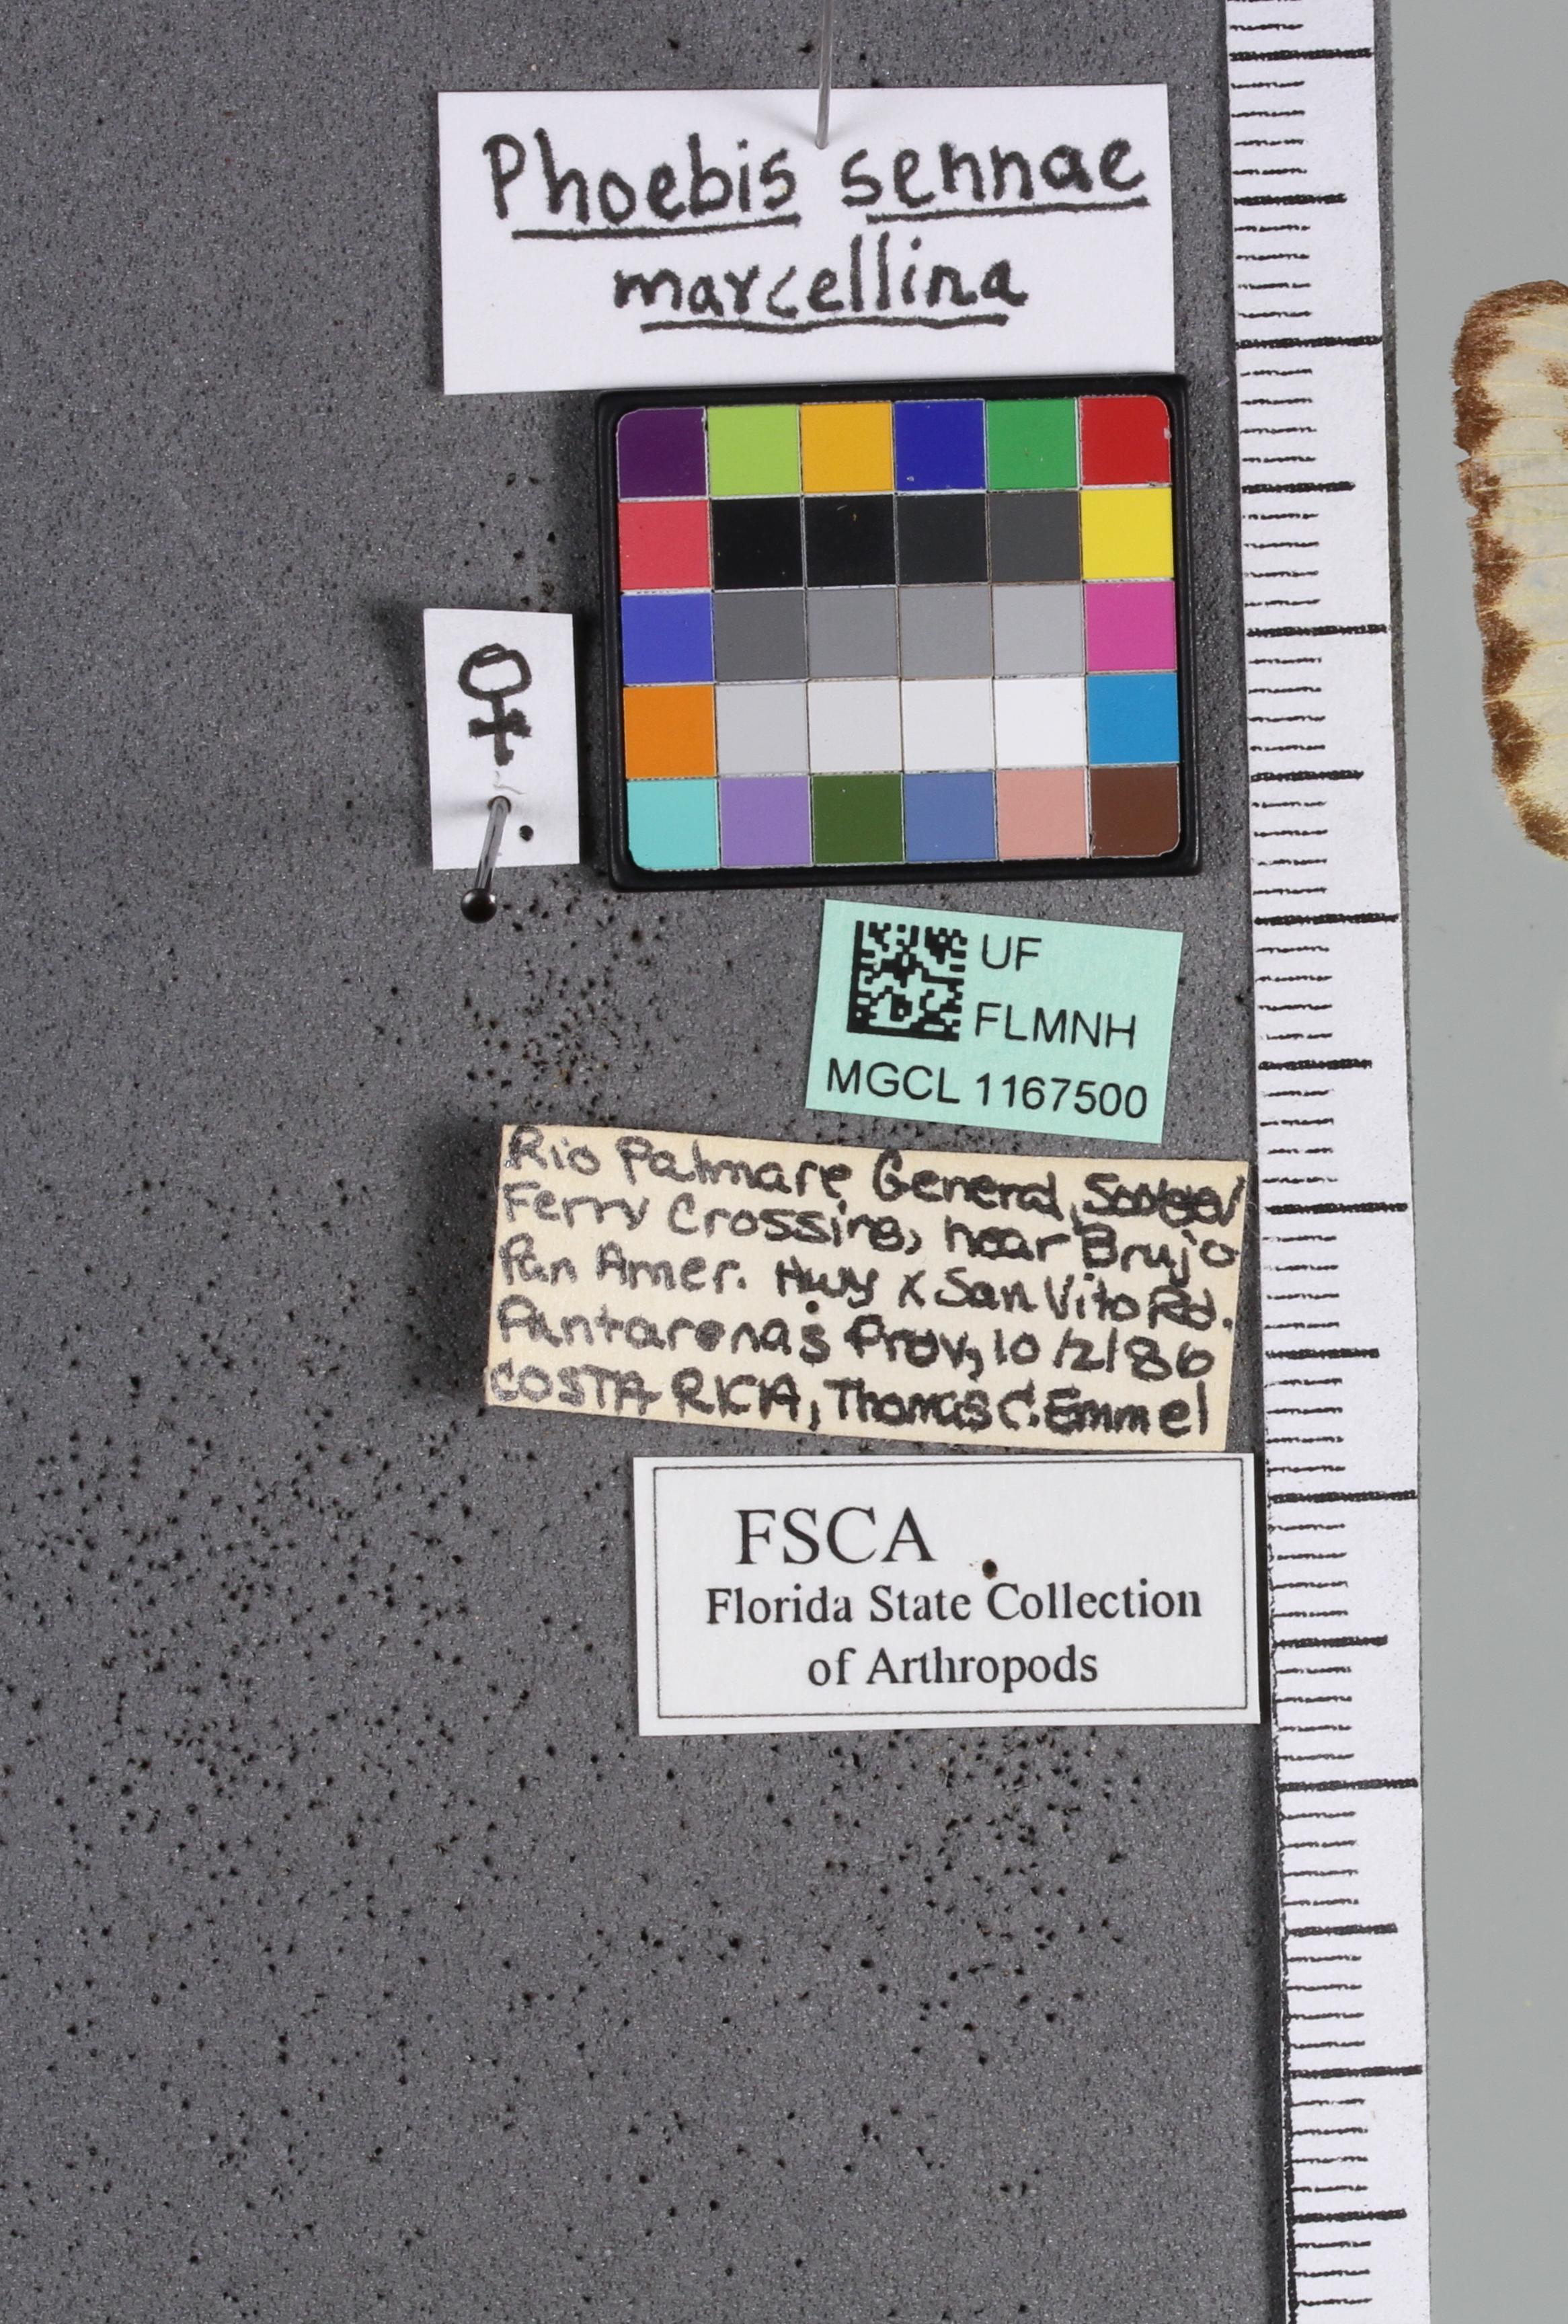 Phoebis sennae
marcellina
♀
UF
FLMNH
MGCL 1167500
Rio Palmare General,
Ferry Crossing, near Brujo
Pan Amer. Hwy x San Vito Rd.
Puntarenas Prov, 10/2/86
COSTA RICA, Thomas C. Emmel
FSCA
Florida State Collection
of Arthropods